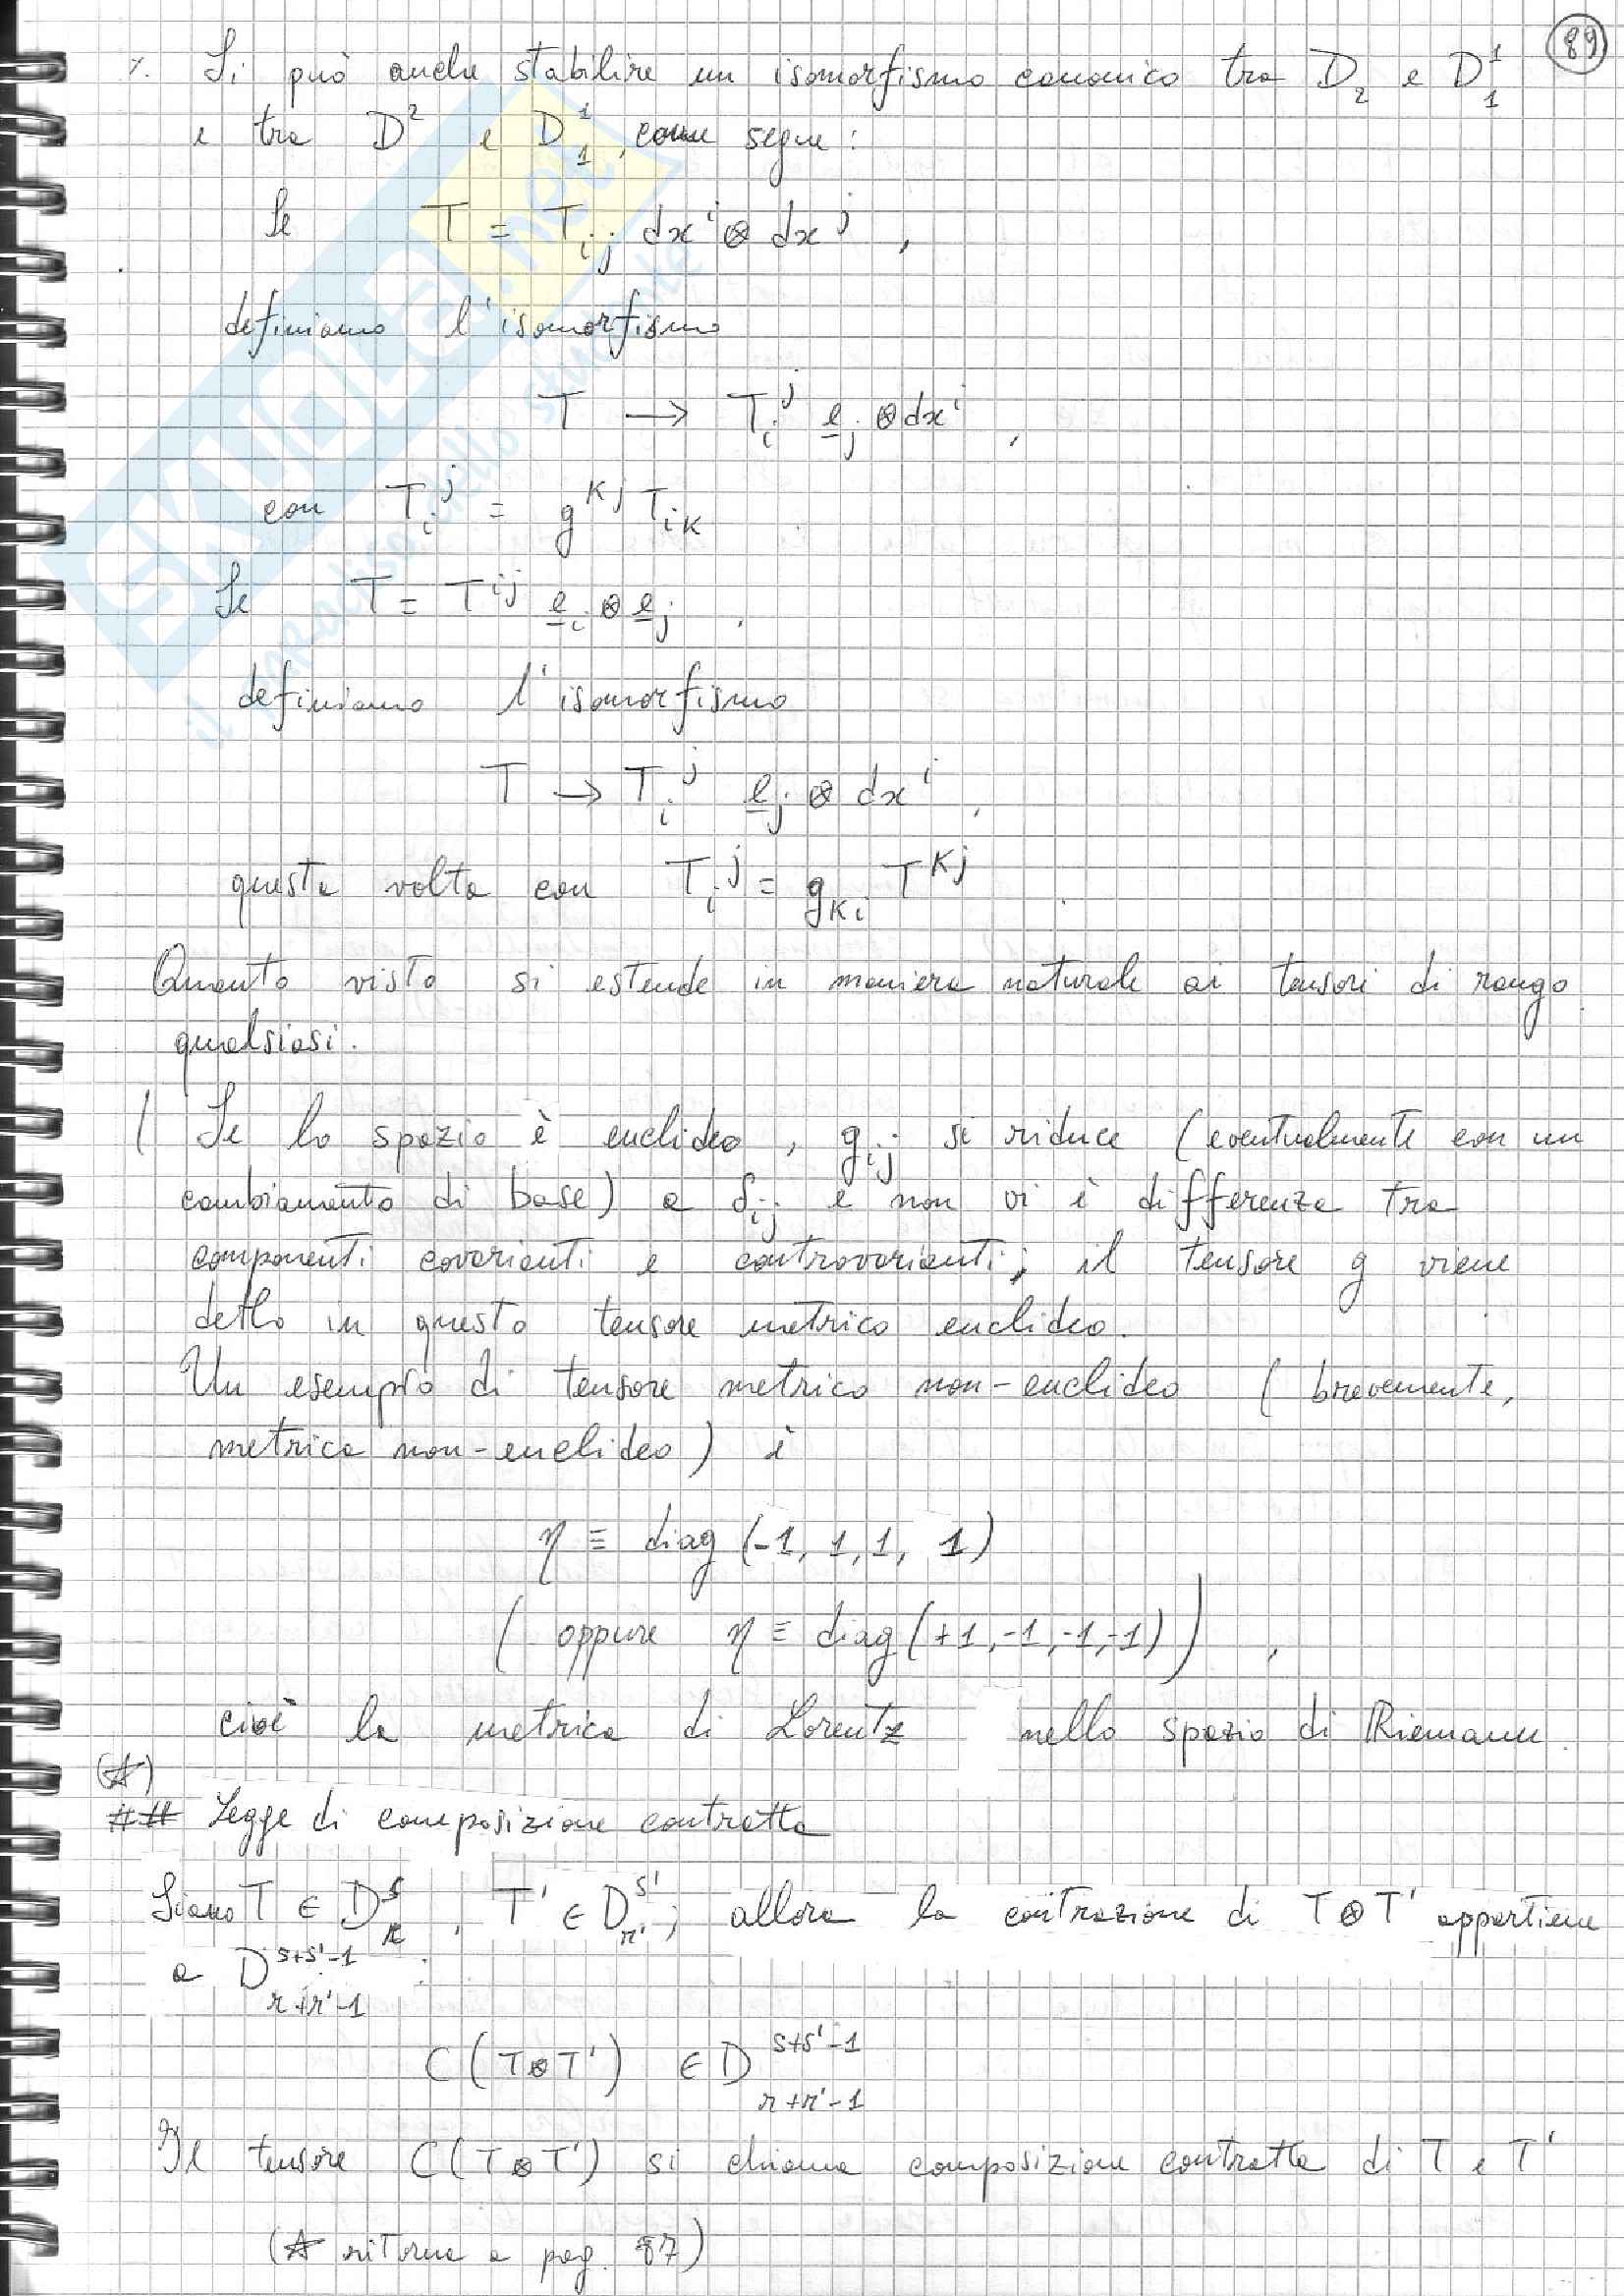 89
٪. Si può anche stabilire un isomorfismo canonico tra D₂ e D¹₁
e tra D² e D¹₁, come segue:
Se T = T_ij dx^i ⊗ dx^j ,
definiamo l'isomorfismo
T → T_i^j e_j ⊗ dx^i ,
con T_i^j = g^kj T_ik
Se T = T^ij e_i ⊗ e_j ,
definiamo l'isomorfismo
T → T_i^j e_j ⊗ dx^i ,
questa volta con T_i^j = g_ki T^kj .
Quanto visto si estende in maniera naturale ai tensori di rango
qualsiasi.
( Se lo spazio è euclideo, g_ij si riduce (eventualmente con un
cambiamento di base) a δ_ij e non vi è differenza tra
componenti covarianti e controvarianti; il tensore g viene
detto in questo tensore metrico euclideo.
Un esempio di tensore metrico non-euclideo ( brevemente,
metrica non-euclidea) è
η ≡ diag (-1, 1, 1, 1)
( oppure η ≡ diag (+1,-1,-1,-1) ) ,
cioè la metrica di Lorentz nello spazio di Riemann.
(☆)
## Legge di composizione contratta
Siano T ∈ D^s_r , T' ∈ D^s'_r' ; allora la contrazione di T⊗T' appartiene
a D^s+s'-1_r+r'-1 :
C (T⊗T') ∈ D^s+s'-1_r+r'-1
Il tensore C(T⊗T') si chiama composizione contratta di T e T'
(☆ ritorna a pag. 87)
SKUOLA.net
il paradiso dello studente